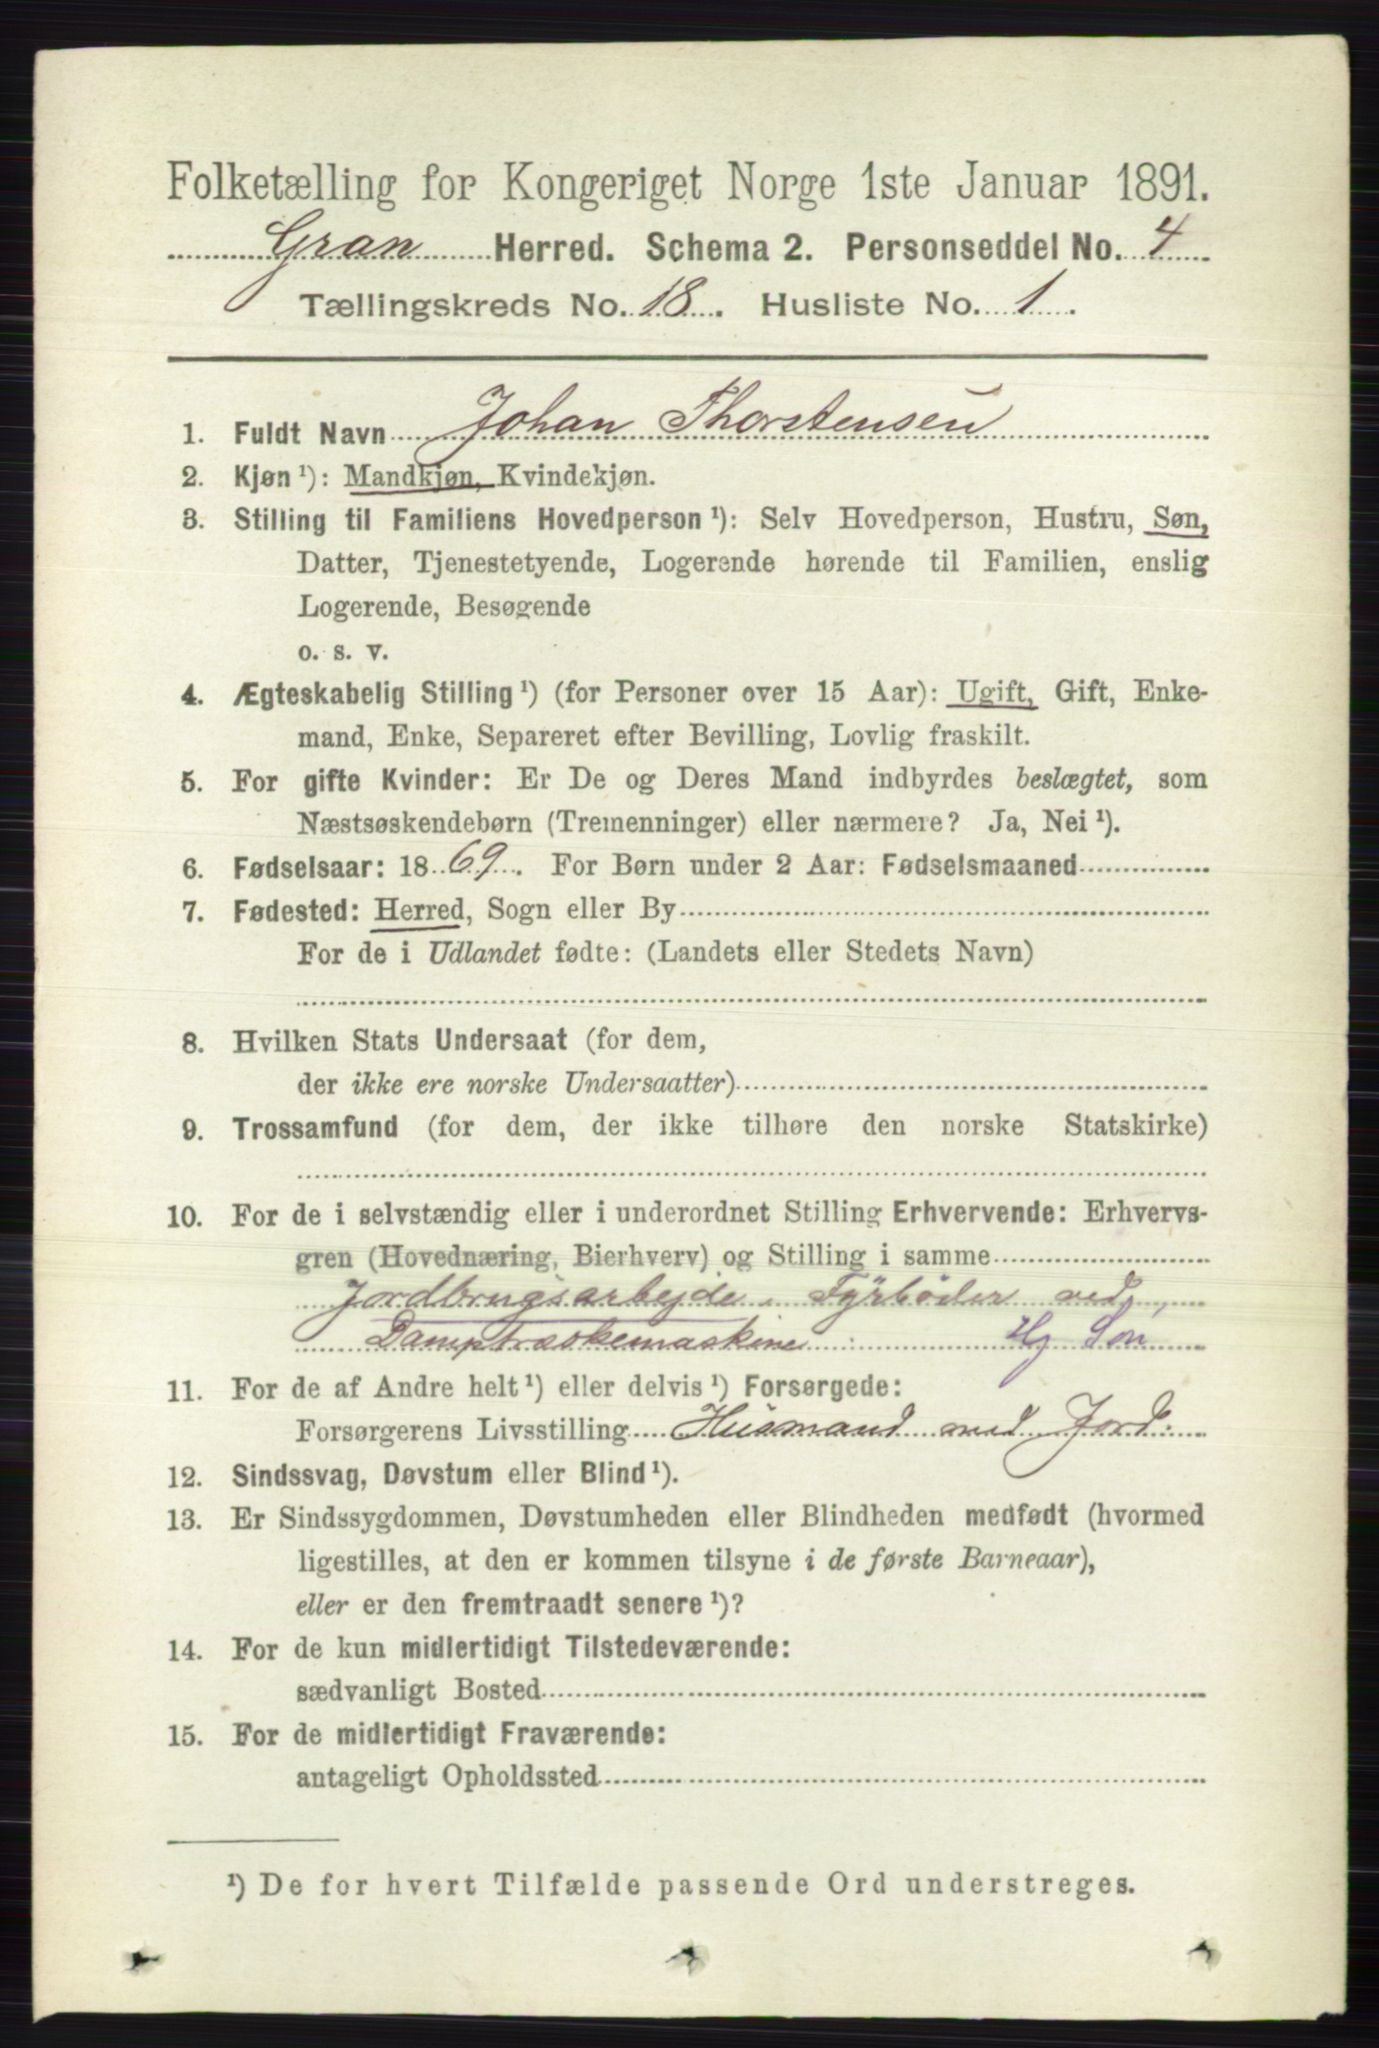 Folketælling for Kongeriget Norge 1ste Januar 1891.
Gran Herred. Schema 2. Personseddel No. 4
Tællingskreds No. 18. Husliste No. 1.
1. Fuldt Navn Johan Thorstensen
2. Kjøn¹): Mandkjøn, Kvindekjøn.
3. Stilling til Familiens Hovedperson¹): Selv Hovedperson, Hustru, Søn,
Datter, Tjenestetyende, Logerende hørende til Familien, enslig
Logerende, Besøgende
o. s. v.
4. Ægteskabelig Stilling¹) (for Personer over 15 Aar): Ugift, Gift, Enke-
mand, Enke, Separeret efter Bevilling, Lovlig fraskilt.
5. For gifte Kvinder: Er De og Deres Mand indbyrdes beslægtet, som
Næstsøskendebørn (Tremenninger) eller nærmere? Ja, Nei¹).
6. Fødselsaar: 1869. For Børn under 2 Aar: Fødselsmaaned
7. Fødested: Herred, Sogn eller By
For de i Udlandet fødte: (Landets eller Stedets Navn)
8. Hvilken Stats Undersaat (for dem,
der ikke ere norske Undersaatter)
9. Trossamfund (for dem, der ikke tilhøre den norske Statskirke)
10. For de i selvstændig eller i underordnet Stilling Erhvervende: Erhvervs-
gren (Hovednæring, Bierhverv) og Stilling i samme
Jordbrugsarbejde. Fyrbøder ved
Damptræskemaskine Hj Søn
11. For de af Andre helt¹) eller delvis¹) Forsørgede:
Forsørgerens Livsstilling Husmand med Jord.
12. Sindssvag, Døvstum eller Blind¹).
13. Er Sindssygdommen, Døvstumheden eller Blindheden medfødt (hvormed
ligestilles, at den er kommen tilsyne i de første Barneaar),
eller er den fremtraadt senere¹)?
14. For de kun midlertidigt Tilstedeværende:
sædvanligt Bosted
15. For de midlertidigt Fraværende:
antageligt Opholdssted
¹) De for hvert Tilfælde passende Ord understreges.